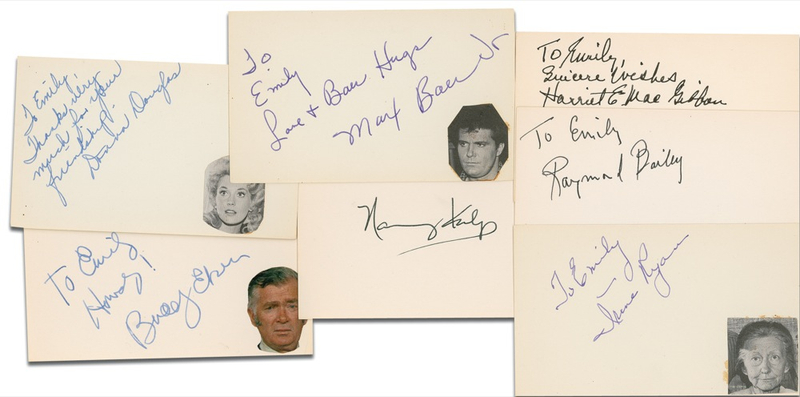 To Emily
Thanks very
much for your
friendship!
Donna Douglas
To
Emily
Love + Baer Hugs
Max Baer Jr
To Emily,
Sincere Wishes
Harriet E. MacGibbon
To Emily
Raymond Bailey
To Emily
Howdy!
Buddy Ebsen
Nancy Kulp
To Emily
Irene Ryan